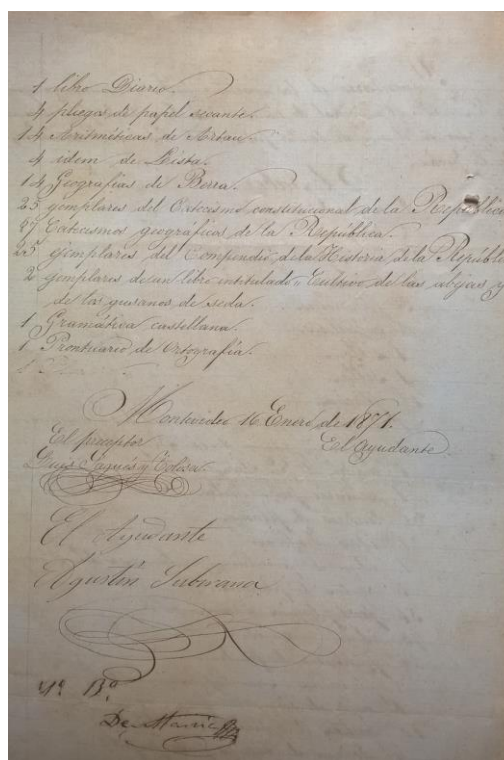 1 libro Diario.
4 pliegos de papel secante.
14 Aritméticas de Artau.
4 idem de Lista.
14 Geografías de Berra.
25 ejemplares del Catecismo constitucional de la República
27 Catecismos geográficos de la República.
25 ejemplares del Compendio de la Historia de la Repúbl
2 ejemplares de un libro intitulado "Cultivo de las abejas y
de los gusanos de seda.
1 Gramática castellana.
1 Prontuario de Ortografía.
Montevideo 16 Enero de 1871.
El preceptor
El Ayudante
Luis
El Ayudante
Agustín Subirana
Vº Bº